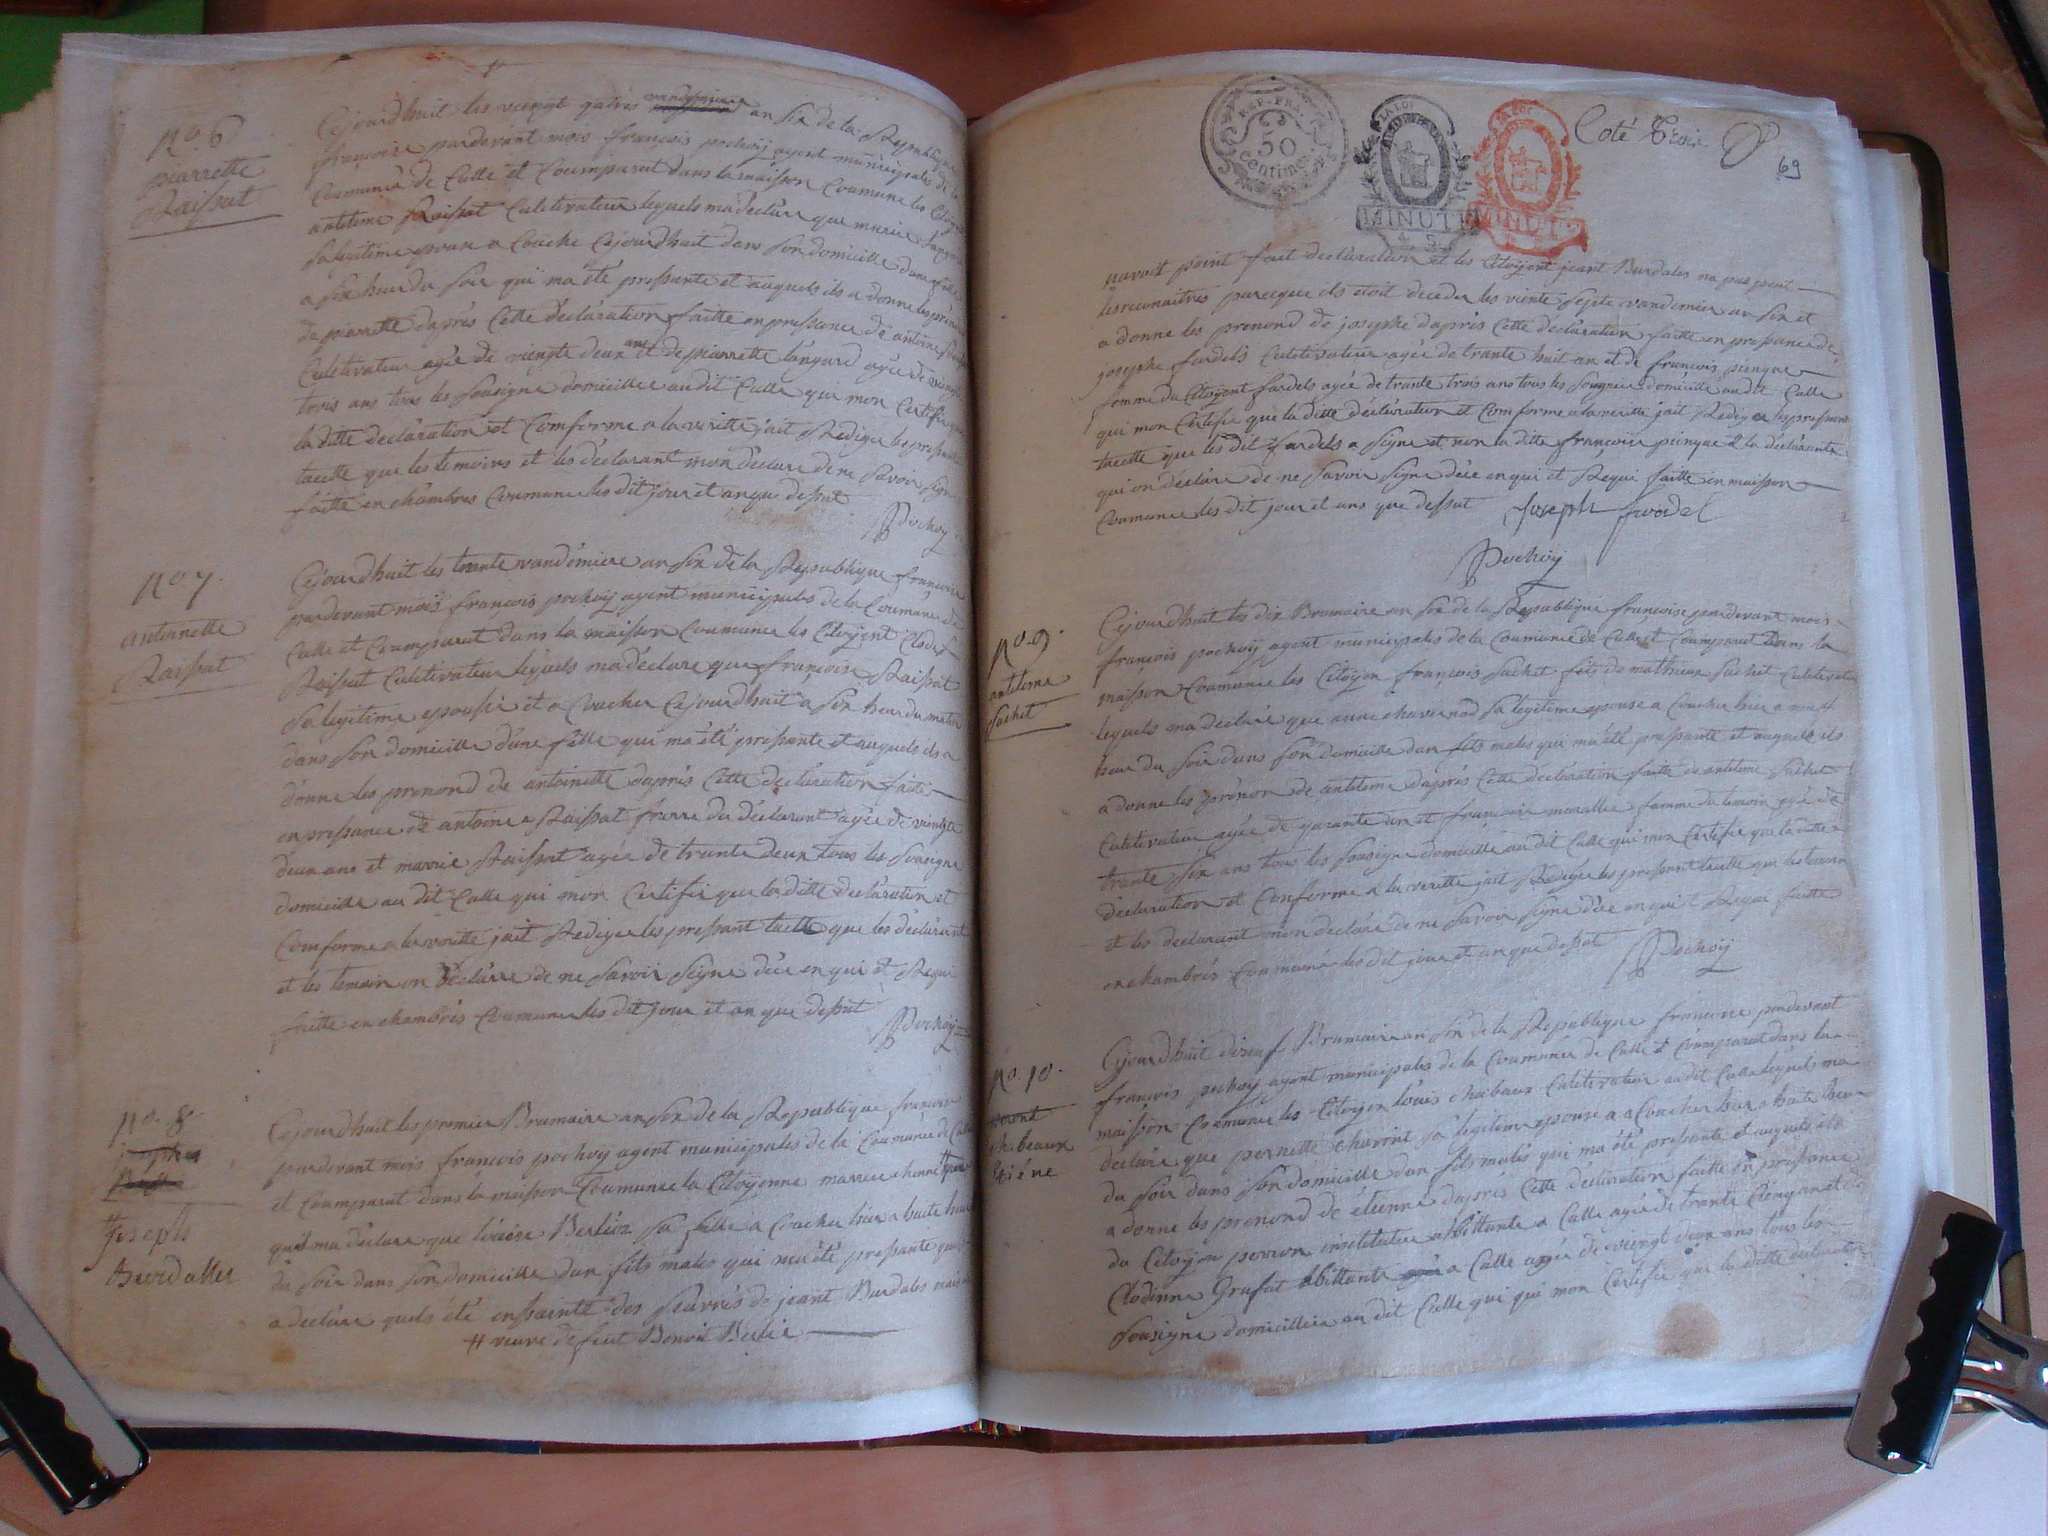 No. 6
piarrette
Raissat
Cejourdhuit les vienpt qatres vandemiere an six de la Republique
françoise pardevant mois françois pochoÿ agent municipales de la
Coumunée de Culle et Coumparut dans la maison Coumune les Citoÿent
antelme Raissat Culetivateur lequels ma déclare que marie
sa legitime epouse a Couché Cejourdhuit dans son domicille dune fille
a six heur du soir qui ma été pressante et auquels ils a donne les prénond
de piarrette daprés Cette déclaration faitte en pressance de antoine
Culetivateur agée de viengte deux ans et de piarrette Langard agée de
trois ans tous les sousigne domicillee audit Culle qui mon Certifie que
la ditte declaration et Comforme a la veritte j'ait Rediger les pressant
tacette que les temoins et les déclarant mon déclare de ne savoir signe
faitte en chambres Coumune les dit jour et an que dessut
Pochoy
No 7.
antoinette
Raissat
Cejourdhuit les trante vandémiere an six de la Republique françoise
pardevant mois françois pochoÿ agent municipales de la Coumune de
Culle et Coumparut dans la maison Coumunee les Citoÿent Clodes
Raissat Culetivateur lequels ma déclare que françoise Raissat
sa legitime epousse et a Coucher Cejourdhuit a six heur du matin
dans son domicille dune fille qui ma été pressante et auquels ils a
donne les prenond de antoinette daprés Cette declaration faitte
en pressance de antoine Raissat frerre du déclarant agée de viengte
deux ans et marrie Raissat agée de trante deux tous les sousigne
domicille au dit Culle qui mon Certifie que la ditte declaration et
Comforme a la veritte jait Rediger les pressant tacette que les déclarant
et les temoin on déclare de ne savoir signe dece en qui et Requi
faitte en chambrés Coumune les dit jour et an que dessut
Pochoy
No. 8
Joseph
Burdalles
Cejourdhuit les premier Brumaire an six de la Republique françoise
pardevant mois françois pochoy agent municipales de la Coumunée de Culle
et Coumparut dans la maison Coumune la Citoÿenne marrie
quil ma déclare que Berlioz sa fille a Coucher hier a huite heur
du soir dans son domicille dun fits males qui ma été pressante
a declare quels été enssainte des seuvres de jeant Burdales mais
# veuve de feut Benoit Berlie
REP. FRA.
50
Centimes
LA LOI
MINUTE
LA LOI
MINUTE
Coté Trois
69
navoit point fait declaration et les Citoÿent jeant Burdales na pas peut
les reconaitres parceque ils etoit deceder les viente septe vandemier an six et
a donne les prenond de josephe daprés Cette déclaration faitte en pressance de
josephe fardels Culetivateur agée de trante huit an et de françois pienque
femme du Citoÿent fardels agée de trante trois ans tous les sousigne domicille au dit Culle
qui mon Certifie que la ditte déclaration et Comforme a la veritte jait Rediger les pressant
tacette que les dit fardels a signe et non la ditte françoise pienque & la déclarante
qui on déclare de ne savoir signe dece en qui et Requi faitte en maisson
Coumune les dit jour et ans que dessut Joseph fardel
Pochoÿ
No. 9.
antelme
Suchet
Cejourdhuit les dix Brumaire an six de la Republique françoise pardevant mois
françois pochoÿ agent municipales de la Coumunée de Culle et Coumparut dans la
maisson Coumunee les Citoÿen françois Suchet fits de mathieux Suchet Culetivateur
lequels ma déclaré que anne chavernod sa legitime epouse a Coucher hier a neuf
heur du soir dans son domicille dun fits males qui ma été pressante et auquels ils
a donne les prénon de antelme daprés Cette déclaration faitte de antelme Suchet
Culetivateur agée de qarante an et françoise femme du temoin agé de
trante six ans tous les sousigne domicille au dit Culle qui mon Certifie que la ditte
déclaration et Comforme a la veritte jait Rediger les pressant tacette que les temoin
et les declarant mon declare de ne savoir signe dece en qui et Requi faitte
en chambrés Coumune les dit jour et an que dessut Pochoÿ
No. 10.
chibeaux
Etiéne
Cejourdhuit dixneuf Brumaire an six de la Republique francoise pardevant
françois pochoÿ agent municipales de la Coumunée de Culle et Coumparut dans la
maisson Coumune les Citoÿen louis chibaux Culetivateur au dit Culle lequels ma
déclare que pernette charrint sa legitime epouse a a Coucher hier a huite heur
du soir dans son domicille dun fits males qui ma été pressante et auquels ils
a donne les prenond de étienne daprés Cette déclaration faitte en pressance
du Citoÿen perron institutier abittante a Culle agée de trante Cienq an et de
Clodinne Grufat abittante a Culle agée de viengt deux ans tous les
sousigne domicillée au dit Culle qui qui mon Certifié que la ditte déclaration